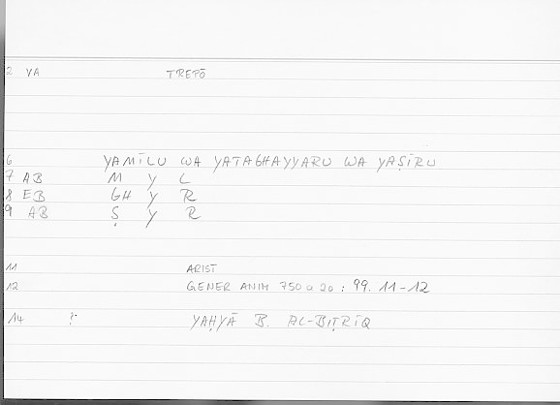 2 VA TREPŌ
6 YAMĪLU WA YATAGHAYYARU WA YAṢĪRU
7 AB M Y L
8 EB GH Y R
9 AB Ṣ Y R
11 ARIST
12 GENER ANIM 750 a 20 : 99. 11-12
14 ? YAḤYĀ B. AL-BIṬRĪQ